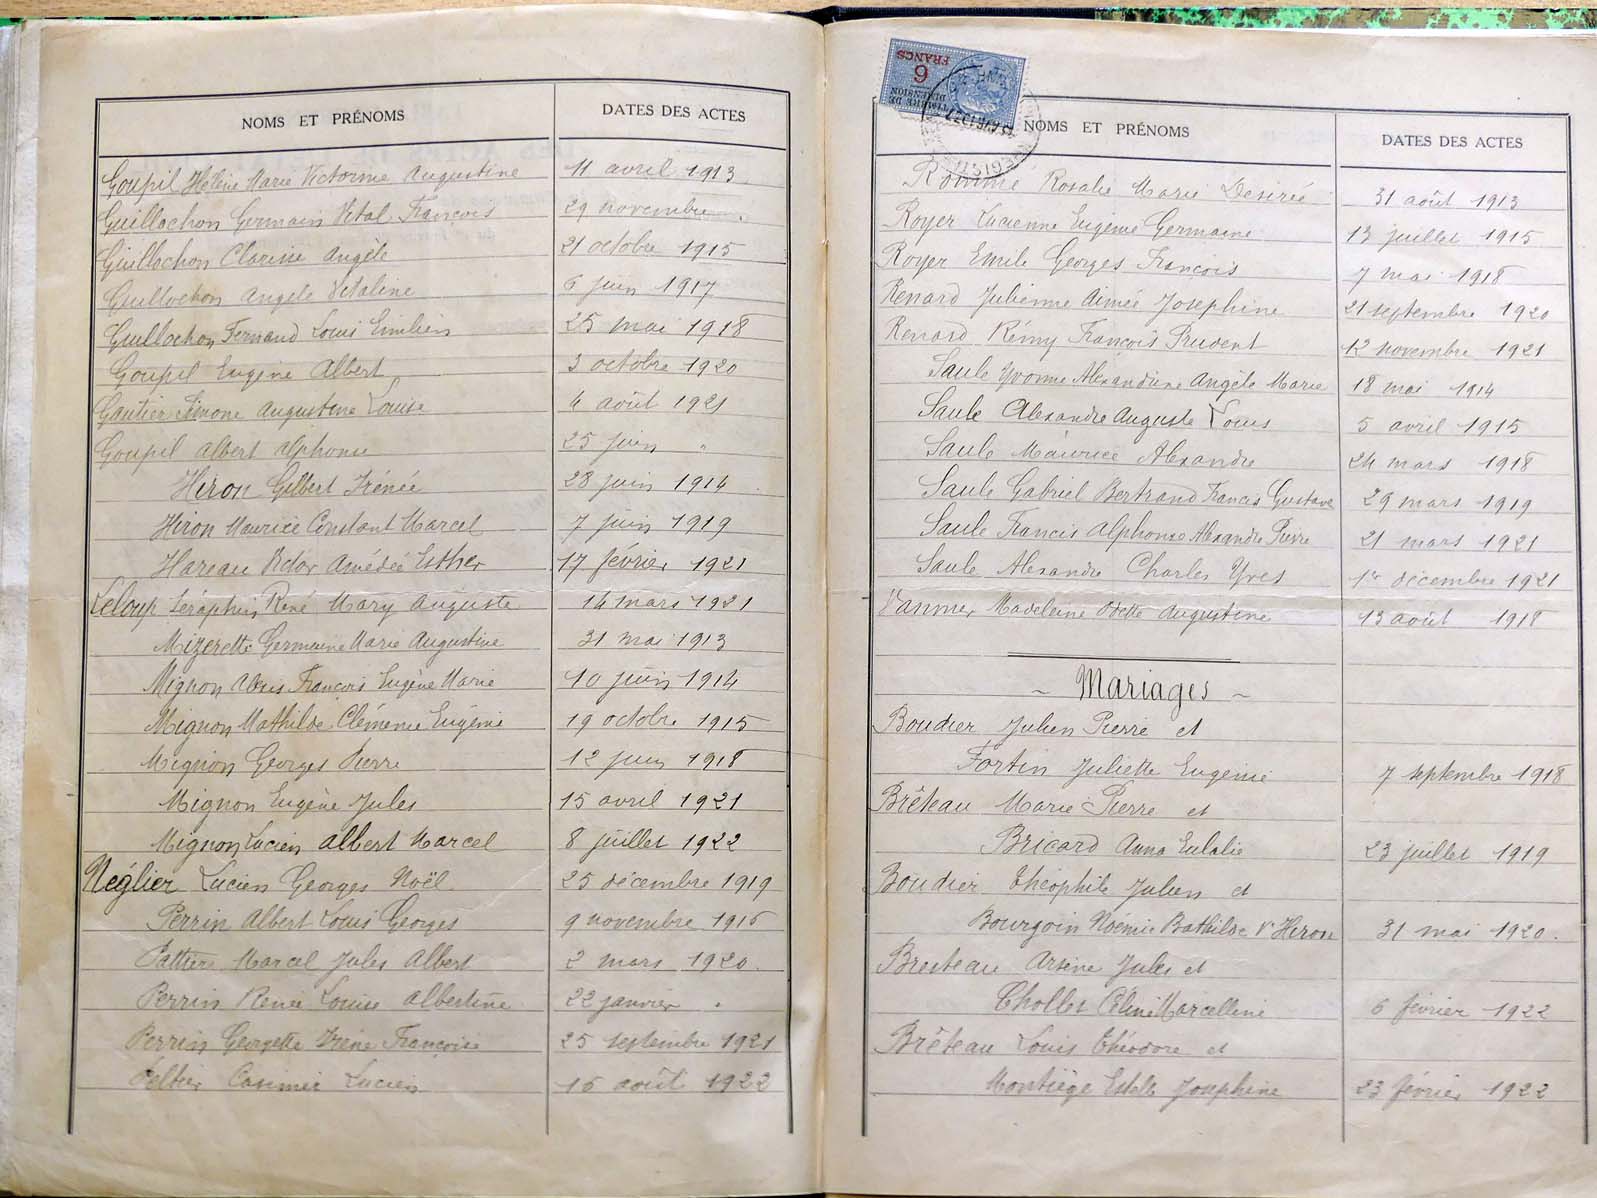 NOMS ET PRÉNOMS DATES DES ACTES
Goupil Hélène Marie Victorine Augustine 11 avril 1913
Guillochon Germain Vital François 29 novembre "
Guillochon Clarisse Angèle 21 octobre 1915
Guillochon Angèle Vitaline 6 juin 1917
Guillochon Fernand Louis Emilien 25 mai 1918
Goupil Eugène Albert 3 octobre 1920
Gautier Simone Augustine Louise 4 août 1921
Goupil Albert Alphonse 25 juin "
Hiron Gilbert Irénée 28 juin 1914
Hiron Maurice Constant Marcel 7 juin 1919
Hareau Victor Amédée Esther 17 février 1921
Leloup Séraphin René Mary Auguste 14 mars 1921
Mizerette Germaine Marie Augustine 31 mai 1913
Mignon François Eugène Marie 10 juin 1914
Mignon Mathilde Clémence Eugénie 19 octobre 1915
Mignon Georges Pierre 12 juin 1918
Mignon Eugène Jules 15 avril 1921
Mignon Lucien Albert Marcel 8 juillet 1922
Néglier Lucien Georges Noël 25 décembre 1919
Perrin Albert Louis Georges 9 novembre 1916
Marcel Jules Albert 2 mars 1920
Perrin Renée Louise Albertine 22 janvier "
Perrin Georgette Irène Françoise 25 septembre 1921
Peltier Casimir Lucien 16 août 1922
6 FRANCS
TIMBRE DE DIMENSION
NOMS ET PRÉNOMS DATES DES ACTES
Rommé Rosalie Marie Desirée 31 août 1913
Royer Lucienne Eugénie Germaine 13 juillet 1915
Royer Emile Georges François 7 mai 1918
Renard Julienne Aimée Josephine 21 septembre 1920
Renard Rémy François Prudent 12 novembre 1921
Saule Yvonne Alexandrine Angèle Marie 18 mai 1914
Saule Alexandre Auguste Louis 5 avril 1915
Saule Maurice Alexandre 24 mars 1918
Saule Gabriel Bertrand Francis Gustave 29 mars 1919
Saule Francis Alphonse Alexandre Pierre 21 mars 1921
Saule Alexandre Charles Yves 1er décembre 1921
Vannier Madeleine Odette Augustine 13 août 1918
~ Mariages ~
Boudier Julien Pierre et
Fortin Juliette Eugénie 7 septembre 1918
Brêteau Marie Pierre et
Bricard Anna Eulalie 23 juillet 1919
Boudier Théophile Julien et
Bourgoin Noémie Bathilde Ve Hiron 31 mai 1920.
Bresteau Arsène Jules et
Chollet Céline Marcelline 6 février 1922
Brêteau Louis Théodore et
Montiège Estelle Joséphine 23 février 1922